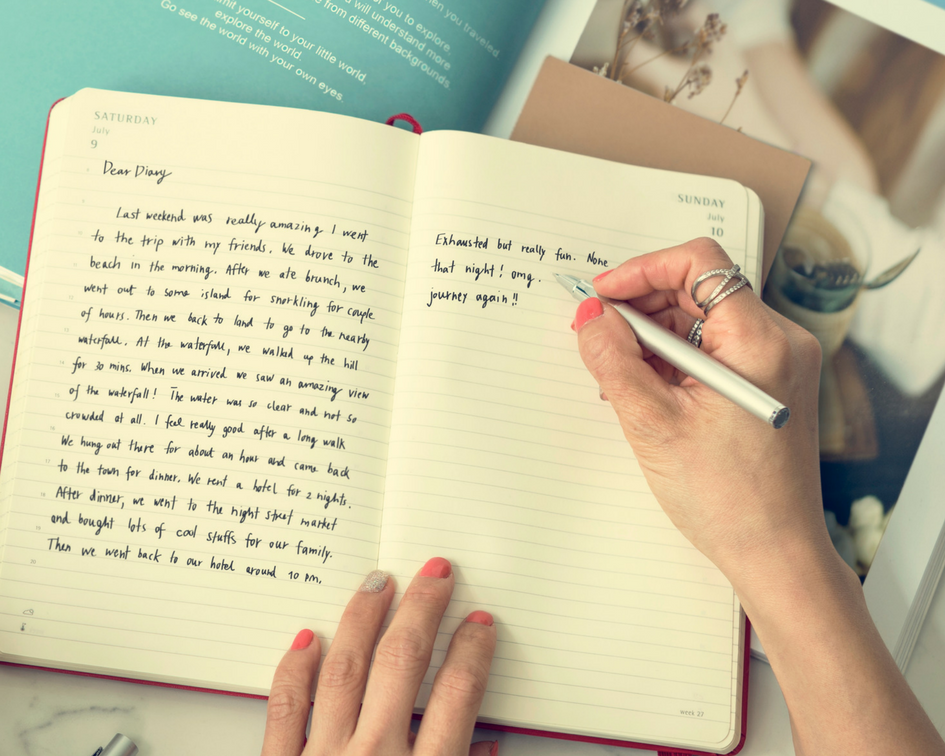 when you traveled
you to explore,
will understand more
from different backgrounds.
mit yourself to your little world,
explore the world.
Go see the world with your own eyes,
SATURDAY
July
9
Dear Diary
Last weekend was really amazing I went
to the trip with my friends. We drove to the
beach in the morning. After we ate brunch, we
went out to some island for snorkling for couple
of hours. Then we back to land to go to the nearby
waterfall. At the waterfall, we walked up the hill
for 30 mins. When we arrived we saw an amazing view
of the waterfall! The water was so clear and not so
crowded at all. I feel really good after a long walk
We hung out there for about an hour and came back
to the town for dinner. We rent a hotel for 2 nights.
After dinner, we went to the night street market
and bought lots of cool stuffs for our family.
Then we went back to our hotel around 10 pm.
SUNDAY
July
10
Exhausted but really fun. None
that night! omg.
journey again!!
week 27